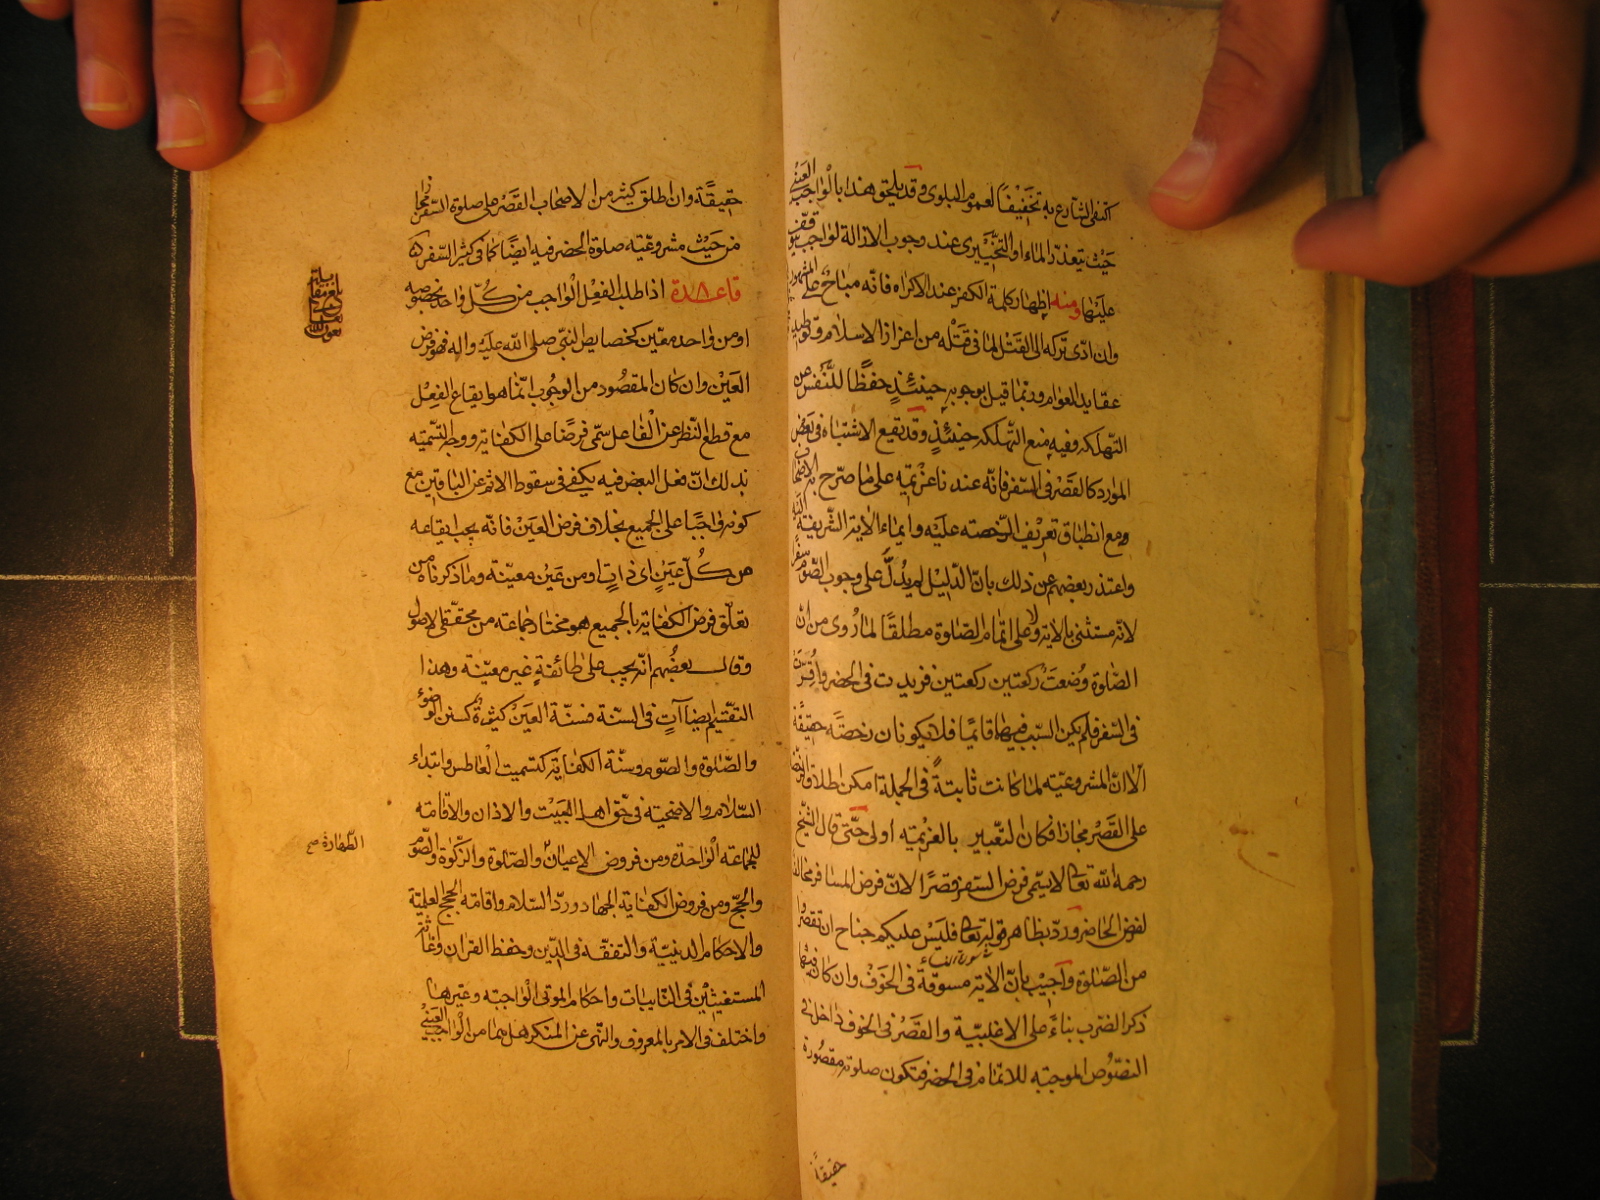 اكتفى الشارع به تخفيفًا لعموم البلوى وقد يلحق هذا بالواجب العيني
حيث يتعذر الماء او التخييري عند وجوب الازالة لواجب
عليها ومنه اظهار كلمة الكفر عند الاكراه فانه مباح على المشهور
وان ادى تركه الى القتل لما في قتله من اعزاز الاسلام وتوطيد
عقايد العوام وربما قيل بوجوبه حينئذٍ حفظًا للنفس من
التهلكه وفيه منع التهلكه حينئذٍ وقد يقع الاشتباه في بعض
الموارد كالقصر في السفر فانه عندنا عزيمة على ما صرح به الاصحاب
ومع انطباق تعريف الرخصة عليه وايماء الاية الشريفة اليه
واعتذر بعضهم عن ذلك بان الدليل لم يدُلّ على وجوب الصوم سفرًا
لانه مستثنى بالاية ولا على اتمام الصلوة مطلقًا لما رُوى من ان
الصلوة وُضعَتْ ركعتين ركعتين فزيدت في الحضر واُقِرّت
في السفر فلم يكن السبب فيهما قائمًا فلا يكونان رخصة حقيقة
الا ان المشروعية لما كانت ثابتةً في الجملة امكن اطلاق الرخصة
على القصر مجازا فكان التعبير بالعزيمة اولى حتى قال الشيخ
رحمه الله تعالى لا يسمى فرض السفر قصرًا لان فرض المسافر مخالف
لفرض الحاضر ورد بظاهر قوله تعالى فليس عليكم جناح ان تقصروا
سورة النساء
من الصلوة واجيب بان الاية مسوقة في الخوف وان كان فيها
ذكر الضرب بناءً على الاغلبية والقصر في الخوف داخل في
النصوص الموجبة للاتمام في الحضر فتكون صلوته مقصورة
حقيقةً
حقيقةً وان اطلق كثير من الاصحاب القصر على صلوة السفر مجازا
من حيث مشروعية صلوة الحضر فيه ايضًا كما في كثير السفر
قاعدة اذا طلب الفعل الواجب من كُلّ واحد بخصوصه
او من واحد معين كخصايص النبي صلى الله عليه واله فهو فرض
العين وان كان المقصود من الوجوب انما هو ايقاع الفعل
مع قطع النظر عن الفاعل سمّى فرضًا على الكفاية ووجه التسمية
بذلك انّ فعل البعض فيه يكفى في سقوط الاثم عن الباقين مع
كونه واجبًا على الجميع بخلاف فرض العين فانه يجب ايقاعه
من كُلّ عينٍ اى ذاتٍ او من عين معينة وما ذكرناه من
تعلق فرض الكفاية بالجميع هو مختار جماعة من محققى الاصول
وقال بعضُهم انه يجب على طائفةٍ غير معينة وهذا
التقسيم ايضا آتٍ في السنة فسنة العين كثيرةٌ كسنن الوضوء
والصلوة والصوم وسنة الكفاية كتسميت العاطس وابتداء
السلام والاضحية في حق اهل البيت والاذان والاقامة
للجماعة الواحدة ومن فروض الاعيان والصلوة والزكوة والصوم
الطهارة صح
والحجّ ومن فروض الكفاية الجهاد وردّ السلام واقامة الحجج العلمية
والاحكام الدينيّة والتفقه في الدين وحفظ القران واغاثة
المستغيثين في النائبات واحكام الموتى الواجبة وغيرها
واختلف في الامر بالمعروف والنهى عن المنكر هل هما من الواجب العيني